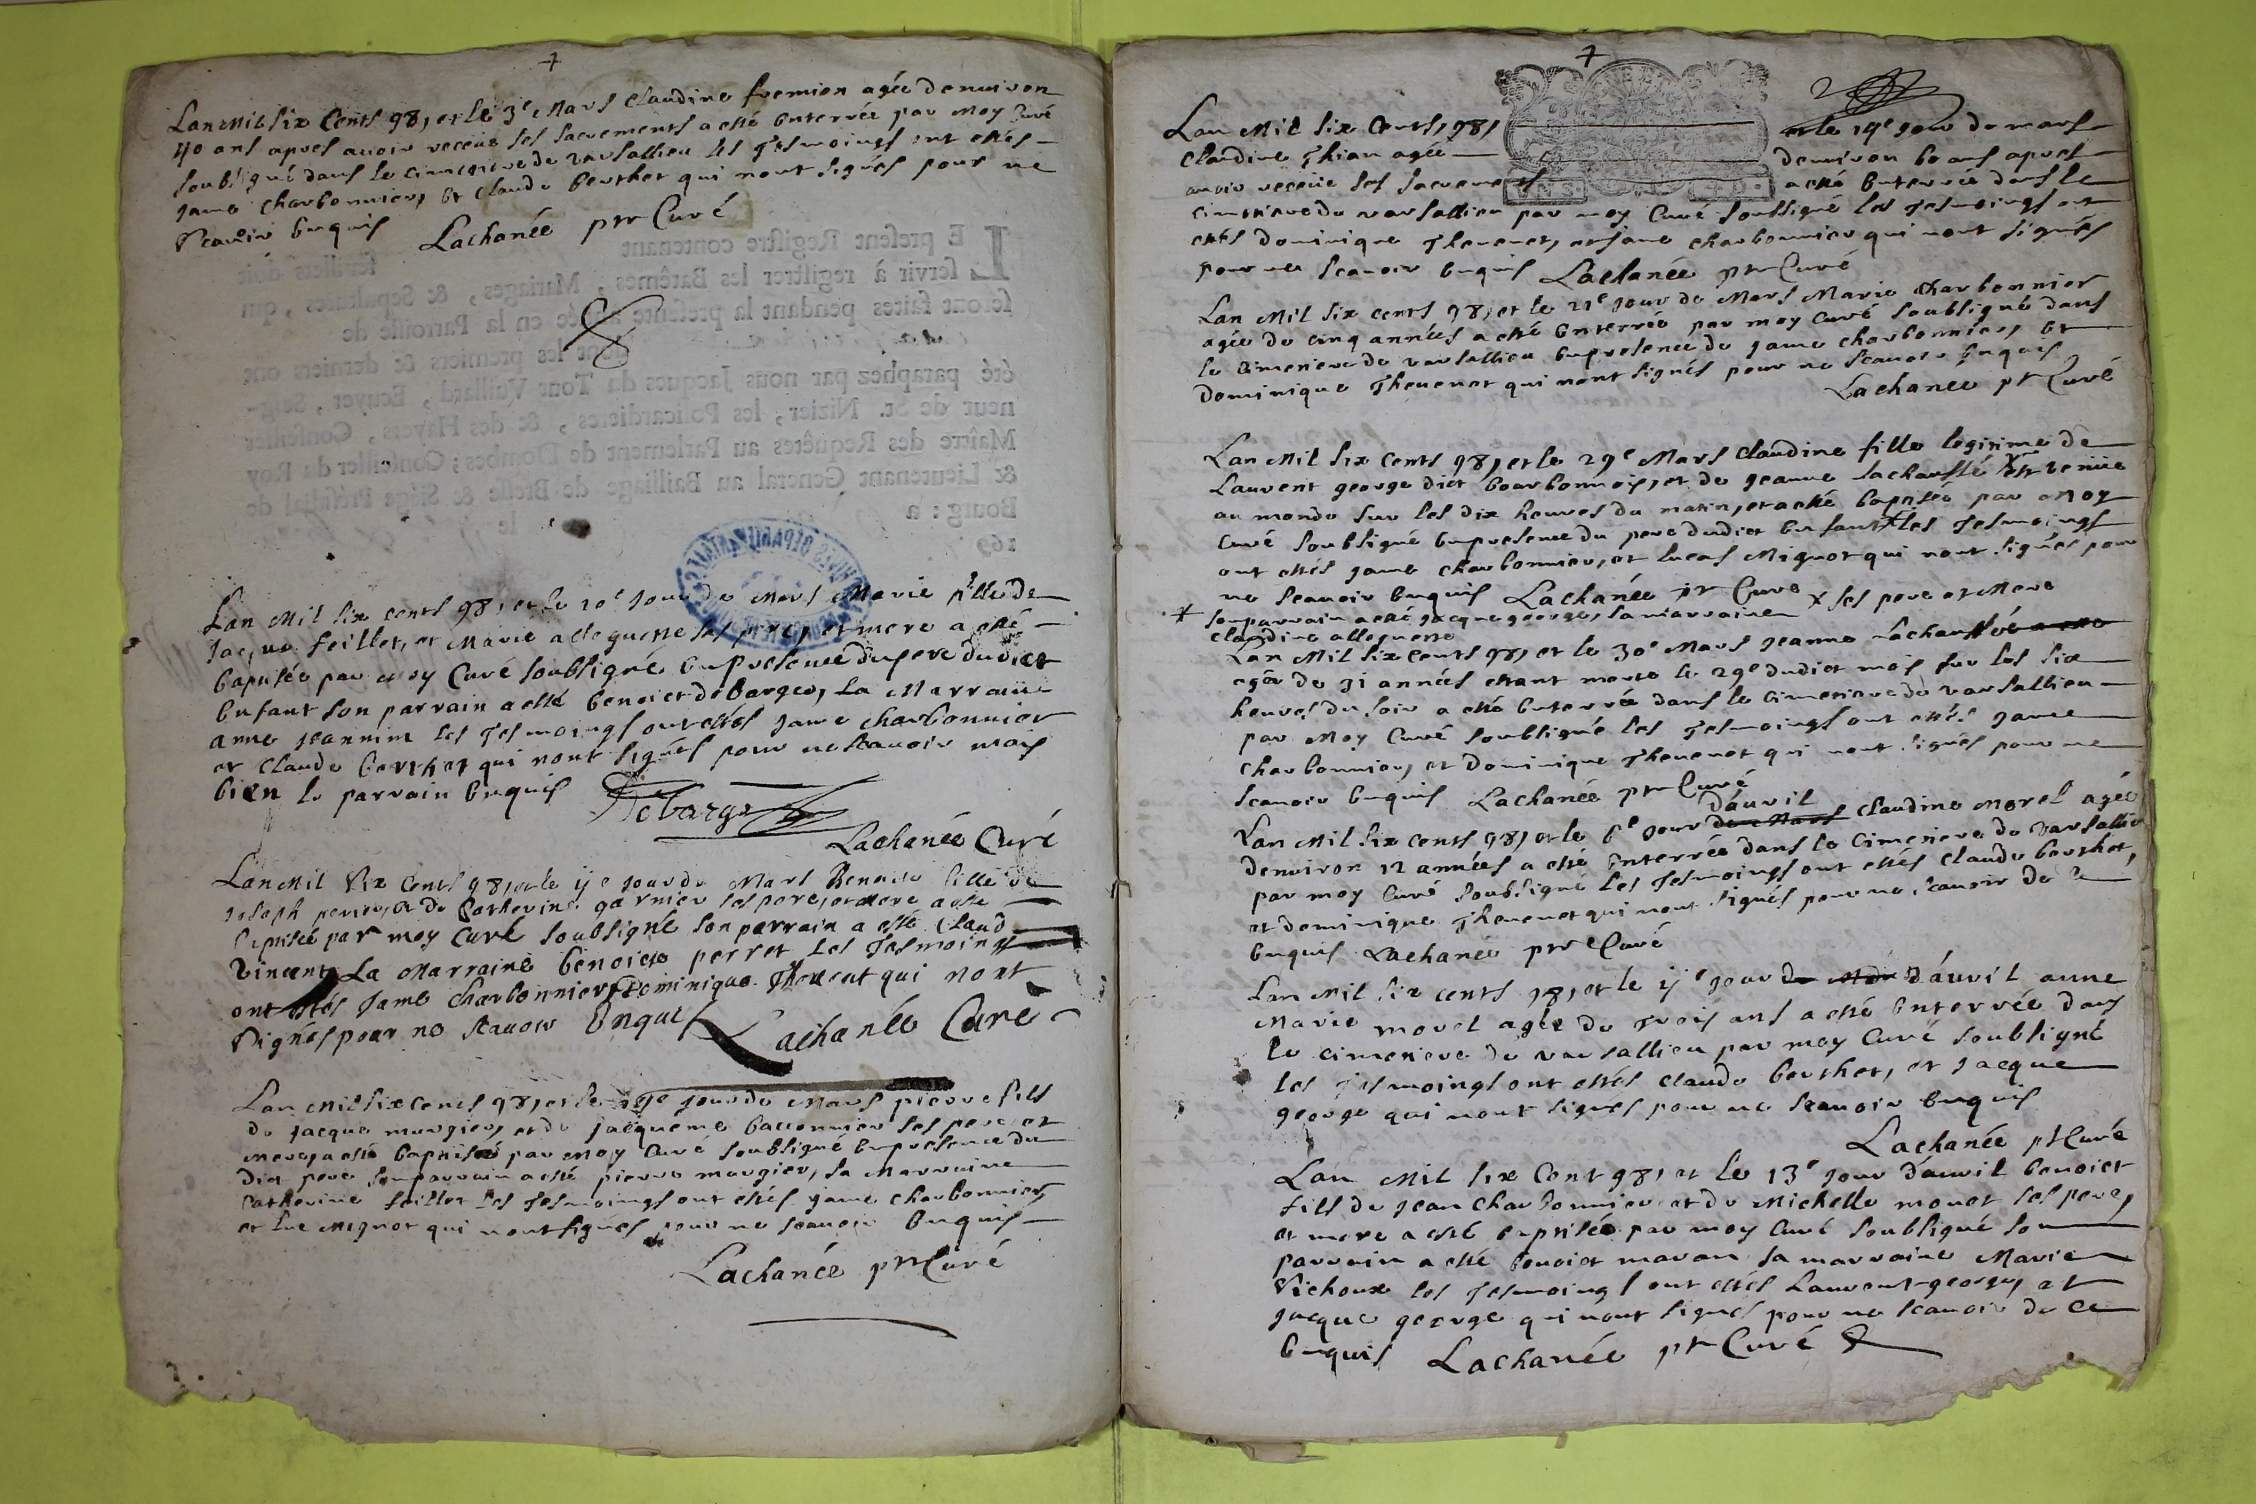 Lan Mil six Cents 98, et le 3e Mars Claudine fremion agée denuiron
40 ans apres auoir receüe ses sacrements a esté enterrée par Moy Curé
soubsigné dans le cimetiere de varsallieu les Tesmoings ont estés
Jame charbonnier, et claude berthet qui nont signés pour ne
scauoir Enquis Lachanée ptr Curé
LE present Registre contenant feüillets doit
servir à registrer les Batêmes, Mariages, & Sepultures, qui
seront faites pendant la presente année en la Parroisse de
dont les premiers & derniers ont
été paraphez par nous Jacques du Tour Vuillard, Ecuyer, Seig-
neur de St. Nizier, les Policardieres, & des Hayers, Conseiller
Maître des Requêtes au Parlement de Dombes; Conseiller du Roy
& Lieutenant General au Bailliage de Bresse & Siége Présidial de
Bourg: à le
169
Lan Mil six cents 98, et le 10e Jour de Mars Marie fille de
Jacque feillet, et Marie alleguesse ses pere, et mere a esté
baptisée par Moy Curé soubsigné En presence du pere dudict
Enfant son parrain a esté benoict debarges, La Marraine
anne jeannin les Tesmoings ont estés Jame charbonnier
et claude berthet qui nont signés pour ne scauoir mais
bien le parrain Enquis Debarge
Lachanée Curé
Lan Mil six Cents 98, et le ije jour de Mars Benoite fille de
joseph perret, et de Catherine garnier ses pere, et mere a esté
baptisée par moy Curé soubsigné son parrain a esté Claud
Vincent La Marraine benoiste perret Les Tesmoings
ont estés Jame charbonnier, Dominique Theuenet qui nont
signés pour ne scauoir Enquis Lachanée Curé
Lan Mil six cents 98, et le jour de Mars pierre fils
de Jacque murgier, et de jacqueme ballonnier ses pere, et
mere, a esté baptisé par Moy Curé soubsigné En presence du
dict pere son parrain a esté pierre murgier, sa Marraine
Catherine feillet les Tesmoings ont estés Jame charbonnier
et luc Mignot qui nont signés pour ne scauoir Enquis
Lachanée ptr Curé
Lan Mil six Cents, 98, et le 14e Jour de mars
claudine Thian agée denuiron 60 ans apres
auoir receüe ses sacrements a esté Enterrée dans le
cimetiere de varsallieu par moy Curé soubsigné les Tesmoings ont
estés dominique Theuenet, et Jame charbonnier qui nont signés
pour ne scauoir Enquis Lachanée ptr Curé
Lan Mil six cents 98, et le 21e Jour de Mars Marie charbonnier
agée de cinq années a esté Enterrée par moy Curé soubsigné dans
le Cimetiere de varsallieu En presence de Jame charbonnier, et
Dominique Theuenet qui nont signés pour ne scauoir Enquis
Lachanée ptr Curé
Lan Mil six cents 98, et le 29e Mars claudine fille legitime de
Laurent george dict bourbonnois, et de jeanne lachaussé est venüe
au monde sur les dix heures du matin, et a esté baptisée par Moy
Curé soubsigné En presence du pere dudict Enfant les Tesmoings
ont estés Jame charbonnier, et lucas Mignot qui nont signés pour
ne scauoir Enquis Lachanée ptr Curé x ses pere et Mere
x son parrain a esté jacque george, sa marraine
claudine alleguesse
Lan Mil six cents 98, et le 30e Mars jeanne lachaussé
agée de 31 années estant morte le 29e dudict mois sur les six
heures du soir a esté Enterrée dans le cimetiere de varsallieu
par Moy Curé soubsigné les Tesmoings ont estés Jame
charbonnier, et Dominique Theuenet qui nont signés pour ne
scauoir Enquis Lachanée ptr Curé
Lan Mil six cents 98, et le 6e Jour de Mars dauril claudine Morel agée
denuiron 12 années a esté Enterrée dans le Cimetiere de varsallieu
par moy Curé soubsigné les Tesmoings ont estés claude berthet,
et dominique Theuenet qui nont signés pour ne scauoir de ce
Enquis Lachanée ptr Curé
Lan Mil six cents 98, et le ije jour dauril anne
Marie morel agée de Trois ans a esté Enterrée dans
le cimetiere de varsallieu par moy Curé soubsigné
les Tesmoings ont estés claude berthet, et Jacque
george qui nont signés pour ne scauoir Enquis
Lachanée ptr Curé
Lan Mil six Cent 98, et le 13e jour dauril benoict
fils de jean charbonnier et de Michelle monet ses pere,
et mere a esté baptisée par moy Curé soubsigné son
parrain a esté benoict maran sa marraine Marie
Vichoux les Tesmoings ont estés Laurent george, et
jacque george qui nont signés pour ne scauoir de ce
Enquis Lachanée ptr Curé